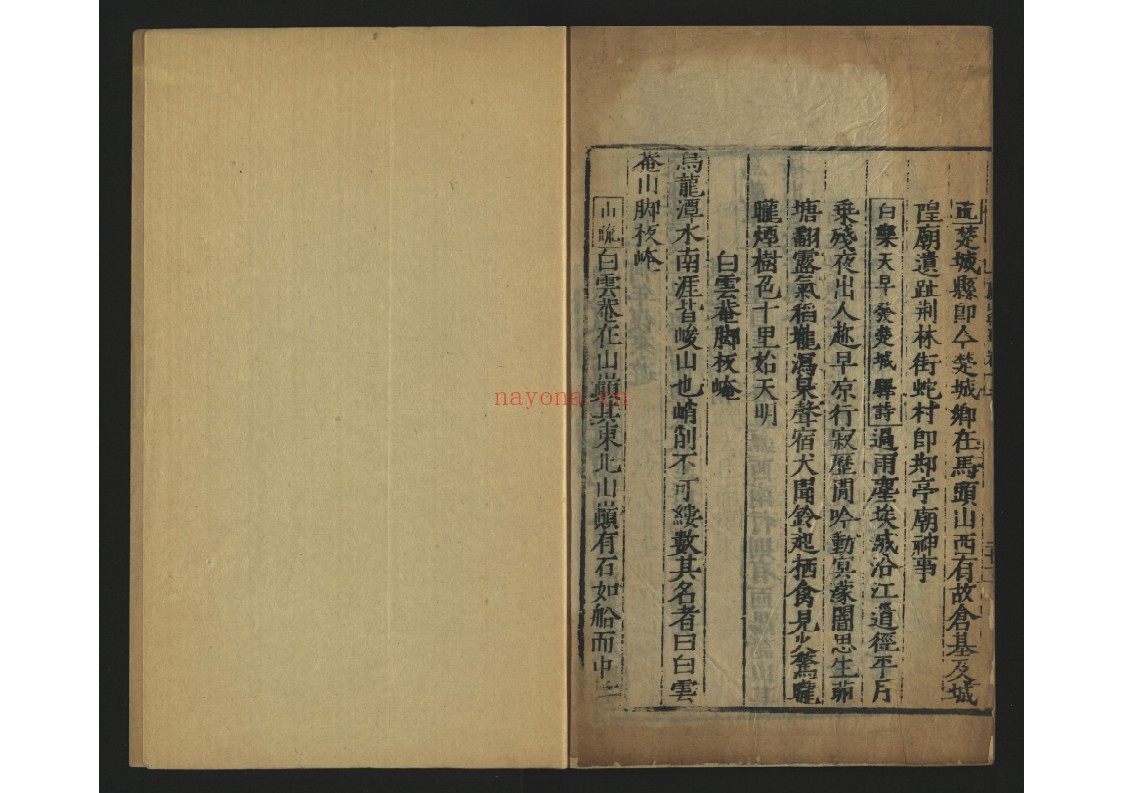 楚城縣即今楚城鄉在馬頭山西有故倉基及城
隍廟遺趾荆林街蛇村即䢼亭廟神事
白樂天早發楚城驛詩過雨塵埃滅沿江道徑平月
乗殘夜出人趂早凉行寂歴閒吟動冥濛闇思生荷
塘翻露氣稻壠瀉泉聲宿犬聞鈴起栖禽見火驚曨
曨煙樹色十里始天明
白雲菴脚板崦
烏龍潭水南涯皆峻山也峭削不可縷數其名者曰白雲
菴山脚板崦
山疏白雲菴在山巔其東北山巔有石如船而中
nayona.cn